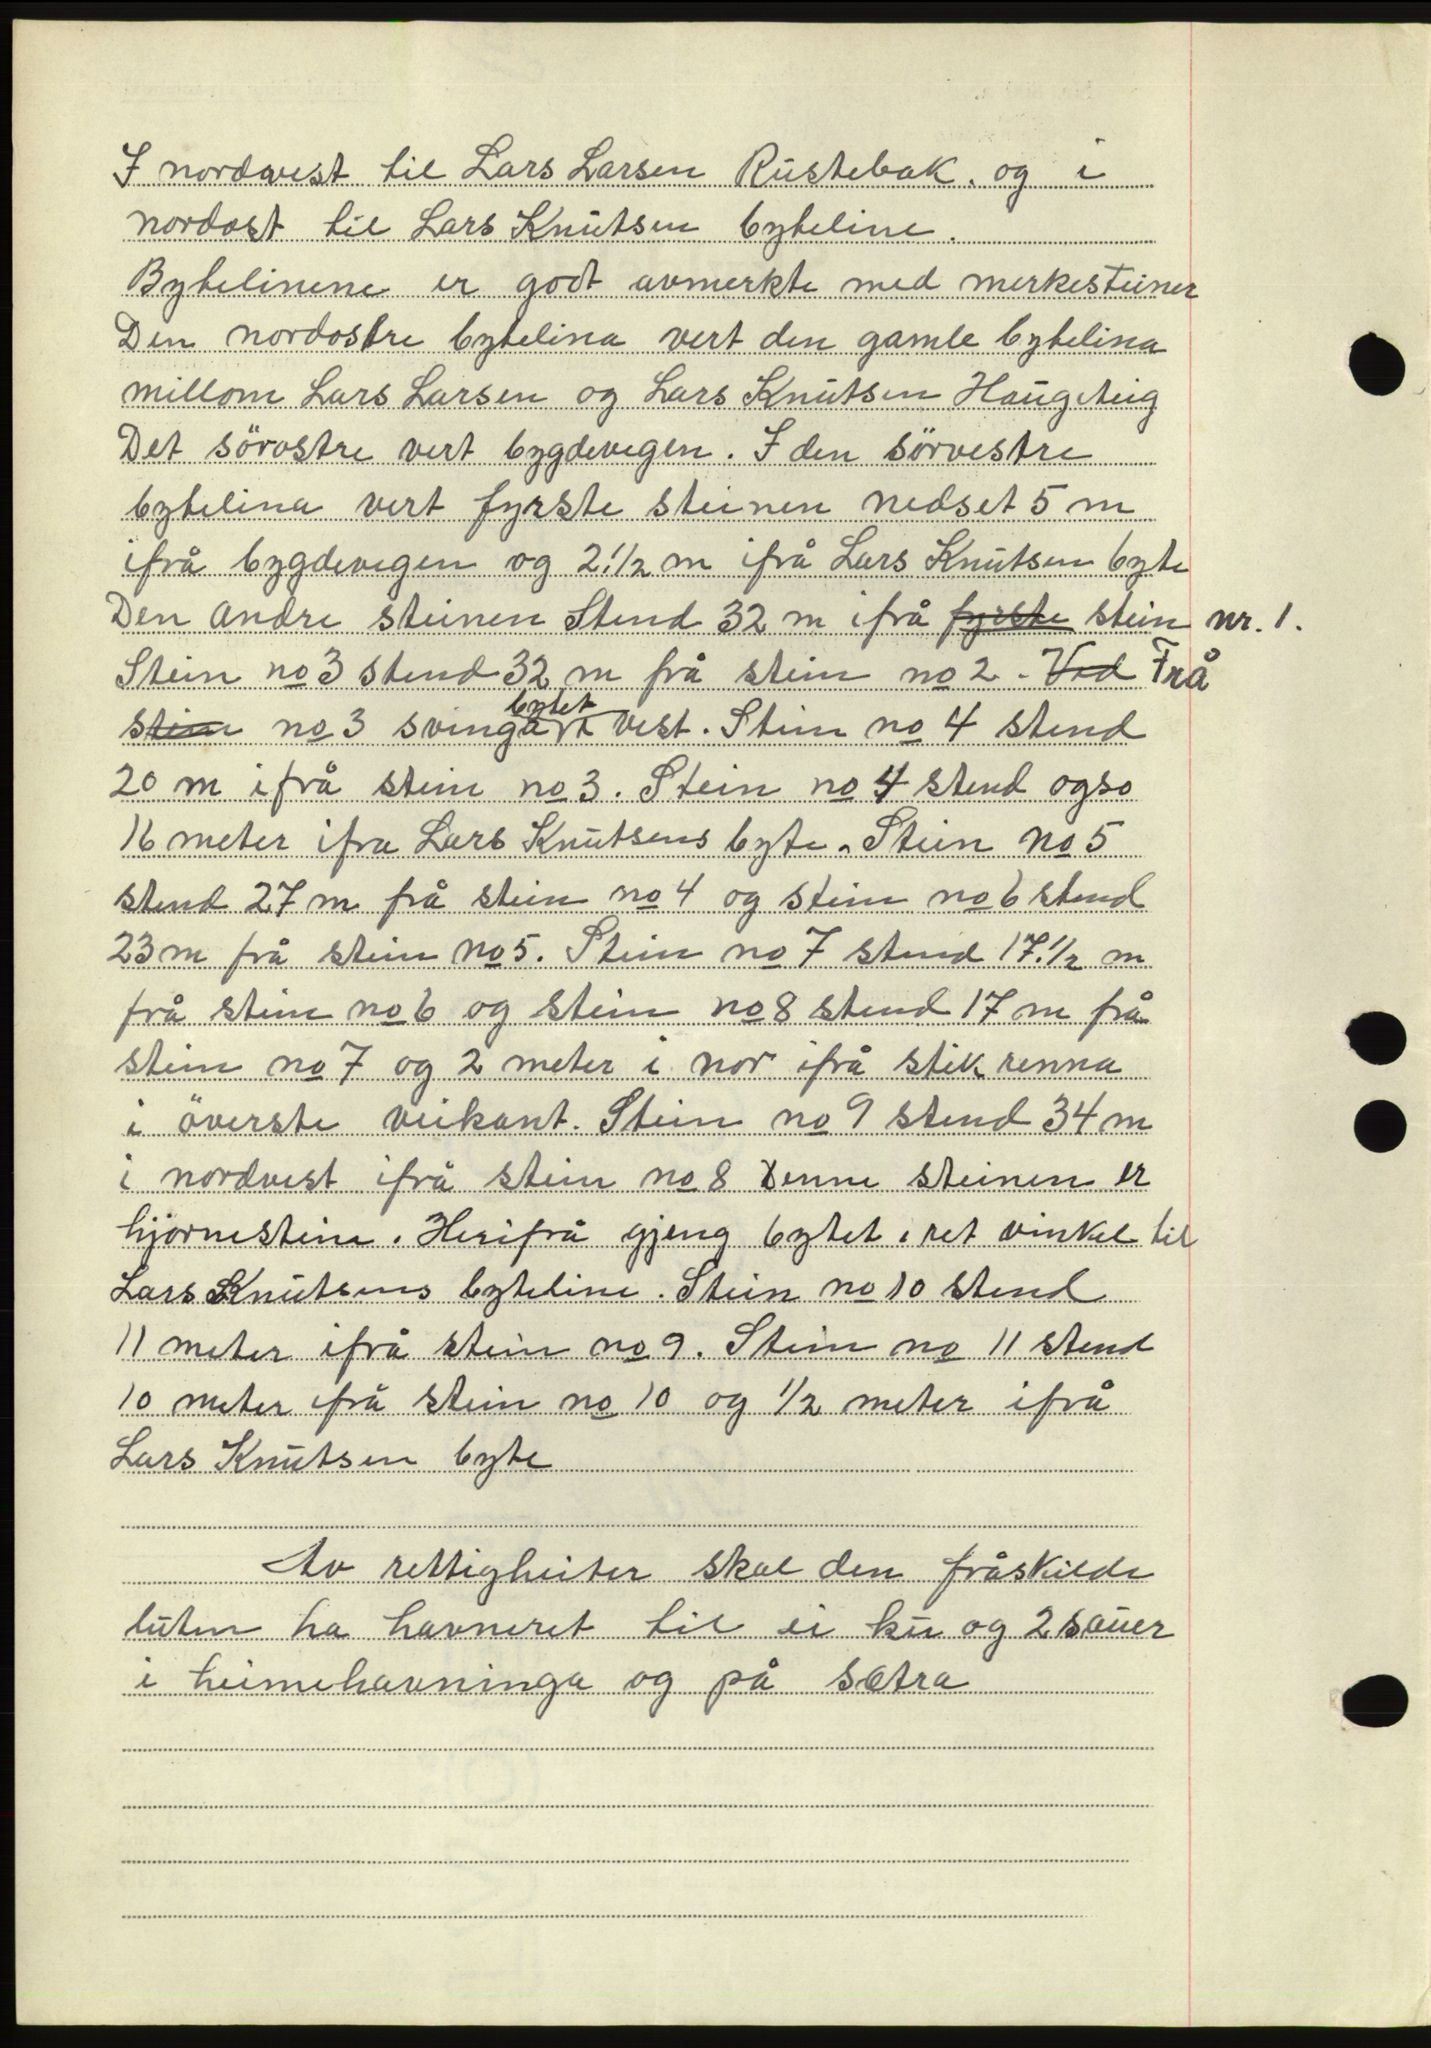 I nordvest til Lars Larsen Rustebak. og i
nordost til Lars Knutsen byteline.
Bytelinene er godt avmerkte med merkesteiner
Den nordostre bytelina vert den gamle bytelina
millom Lars Larsen og Lars Knutsen Haugteig
Det sörostre vert bygdevegen. I den sörvestre
bytelina vert fyrste steinen nedset 5 m
ifrå bygdevegen og 2.1/2 m ifrå Lars Knutsen byte
Den andre steinen stend 32 m ifrå fyrste stein nr. 1.
Stein no 3 stend 32 m frå stein no 2. Ved Frå
stein no 3 svingar bytet vest. Stein no 4 stend
20 m ifrå stein no 3. Stein no 4 stend ogso
16 meter ifra Lars Knutsens byte. Stein no 5
stend 27 m frå stein no 4 og stein no 6 stend
23 m frå stein no 5. Stein no 7 stend 17.1/2 m
frå stein no 6 og stein no 8 stend 17 m frå
stein no 7 og 2 meter i nor ifrå stikrenna
i överste veikant. Stein no 9 stend 34 m
i nordvest ifrå stein no 8 Denne steinen er
hjornestein. Herifrå gjeng bytet i ret vinkel til
Lars Knutsens byteline. Stein no 10 stend
11 meter ifrå stein no 9. Stein no 11 stend
10 meter ifrå stein no 10 og 1/2 meter ifrå
Lars Knutsen byte
Av rettigheiter skal den fråskilde
luten ha havneret til ei ku og 2 sauer
i heimehavninga og på sætra